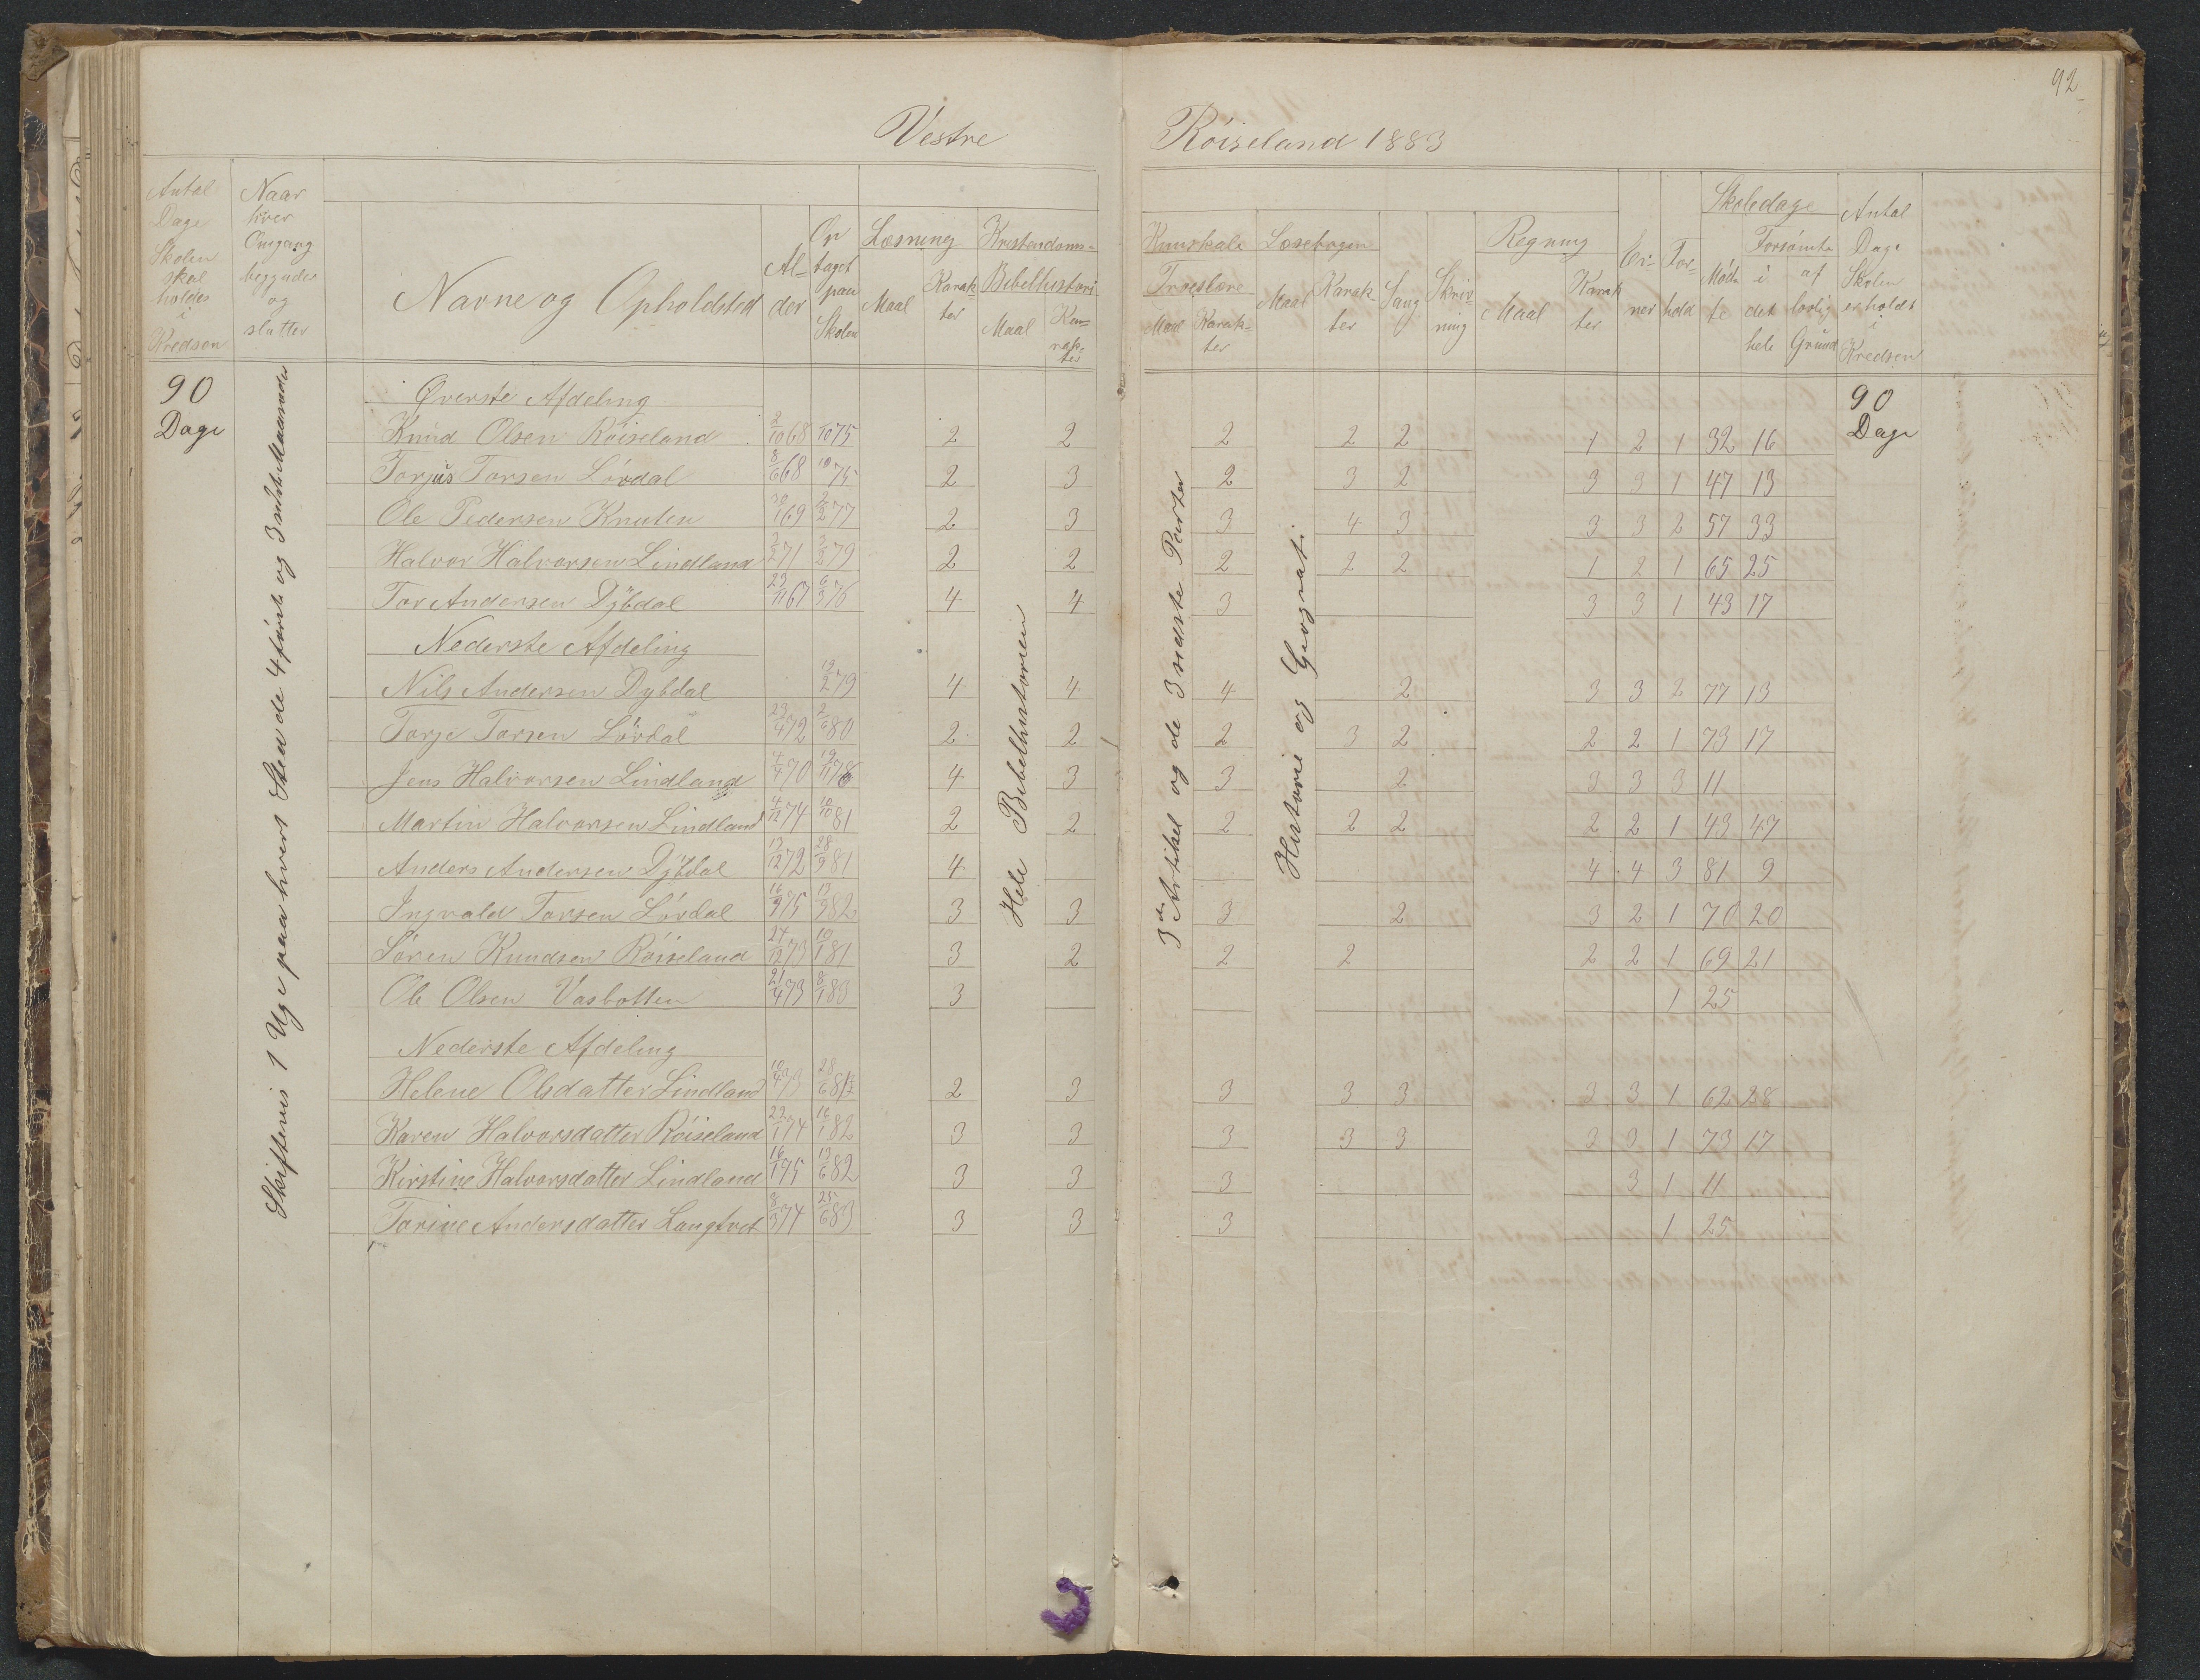 92
Vestre Röiseland 1883
Antal Dage Skolen skal holdes i Kredsen
Naar hver Omgang begynder og slutter
Navne og Opholdsted
Al-der
Op taget paa Skolen
Læsning
Maal
Karak-ter
Kristendoms-
Bibelhistori
Maal
Ka-rak-ter
Kunskab
Troeslære
Maal
Karak-ter
Læsebogen
Maal
Karak-ter
Sang
Skriv-ning
Regning
Maal
Karak ter
Ev-ner
For-hold
Skoledage
Mødte
Forsømte
i det hele
af lovlig Grund
Antal Dage Skolen er holdt i Kredsen
90 Dage
Skiftevis 1 Uge paa hvert Sted de 4 første og 3 sidste Maaneder
Hele Bibelhistorien
3die Artikel og de 3 næste Parter
Historie og Geografi
90 Dage
Øverste Afdeling
Knud Olsen Röiseland 2/10 68 /10 75 2 2 2 2 2 1 2 1 32 16
Torjus Torsen Lövdal 8/6 68 10 75 2 3 2 3 2 3 3 1 47 13
Ole Pedersen Knuten 30/1 69 2/2 77 2 3 3 4 3 3 3 2 57 33
Halvor Halvorsen Lindland 3/2 71 3/2 79 2 2 2 2 2 1 2 1 65 25
Tor Andersen Dybdal 23/11 67 6/3 76 4 4 3 3 3 1 43 17
Nederste Afdeling
Nils Andersen Dybdal 13/2 79 4 4 4 2 3 3 2 77 13
Torje Torsen Lövdal 23/4 72 2/6 80 2 2 2 3 2 2 2 1 73 17
Jens Halvorsen Lindland 4/4 70 19/11 78 4 3 3 2 3 3 3 11
Martin Halvorsen Lindland 4/12 74 10/10 81 2 2 2 2 2 2 2 1 43 47
Anders Andersen Dybdal 13/12 72 28/9 81 4 4 4 3 81 9
Ingvald Torsen Lövdal 16/9 75 13/9 82 3 3 3 2 3 2 1 70 20
Sören Knudsen Röiseland 24/12 73 19/1 81 3 2 2 2 2 2 1 69 21
Ole Olsen Vasbotten 21/4 73 8/1 83 3 1 25
Nederste Afdeling
Helene Olsdatter Lindland 10/4 73 28/6 81 2 3 3 3 3 3 3 1 62 28
Karen Halvorsdatter Röiseland 22/1 74 16/1 82 3 3 3 3 3 3 3 1 73 17
Kirstine Halvorsdatter Lindland 16/1 75 13/6 82 3 3 3 3 1 11
Torine Andersdatter Langtvet 8/3 74 25/6 83 3 3 3 1 25